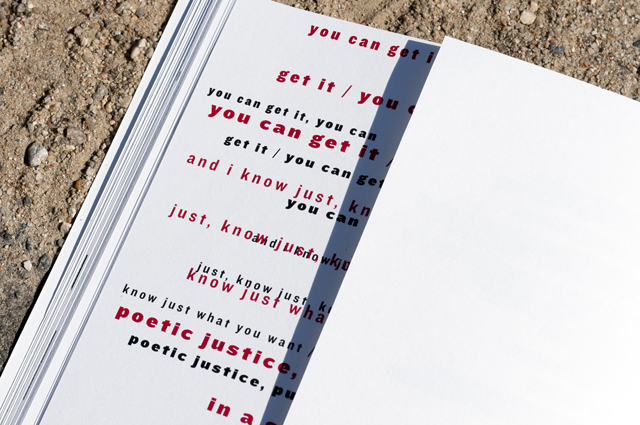 you can get
get it / you
you can get it, you can
you can get it /
get it / you can get
and i know just,
you can
just, know just,
and i know
just, know just,
know just
know just what you want /
poetic justice,
poetic justice,
in a